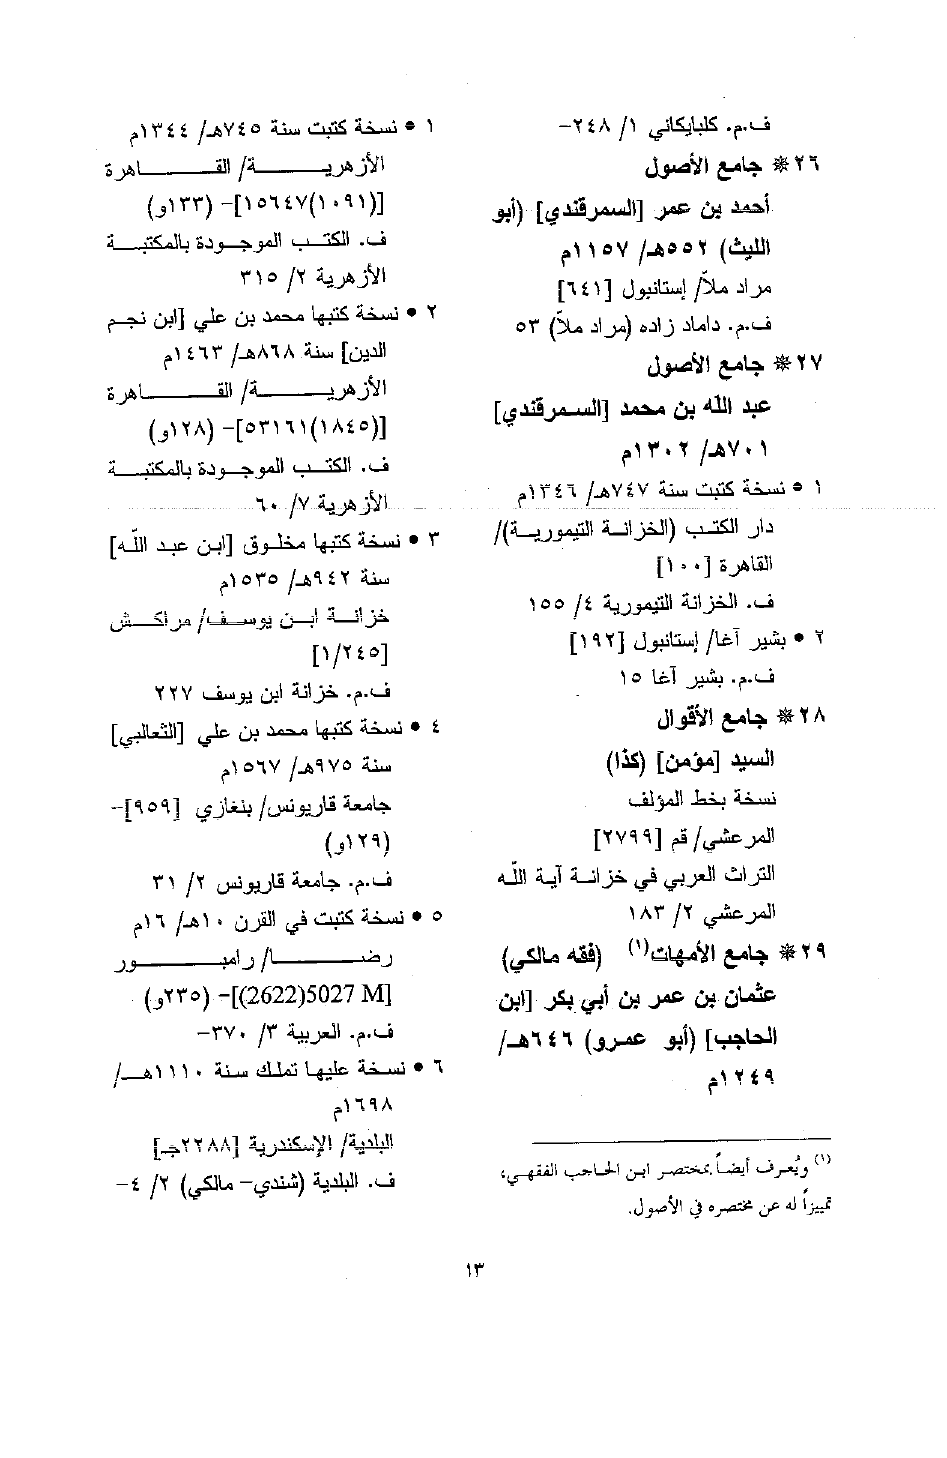 ف.م. كلبايكاني ١/ ٢٤٨-
٢٦* جامع الأصول
أحمد بن عمر [السمرقندي] (أبو
الليث) ٥٥٢هـ/ ١١٥٧م
مراد ملاّ/ إستانبول [٦٤١]
ف.م. داماد زاده (مراد ملاّ) ٥٣
٢٧* جامع الأصول
عبد الله بن محمد [السمرقندي]
٧٠١هـ/ ١٣٠٢م
١ • نسخة كتبت سنة ٧٤٧هـ/ ١٣٤٦م
دار الكتب (الخزانة التيمورية)/
القاهرة [١٠٠]
ف. الخزانة التيمورية ٤/ ١٥٥
٢ • بشير آغا/ إستانبول [١٩٢]
ف.م. بشير آغا ١٥
٢٨* جامع الأقوال
السيد [مؤمن] (كذا)
نسخة بخط المؤلف
المرعشي/ قم [٢٧٩٩]
التراث العربي في خزانة آية اللّه
المرعشي ٢/ ١٨٣
٢٩* جامع الأمهات(١) (فقه مالكي)
عثمان بن عمر بن أبي بكر [ابن
الحاجب] (أبو عمرو) ٦٤٦هـ/
١٢٤٩م
(١) ويُعرف أيضاً بمختصر ابن الحاجب الفقهي،
تمييزاً له عن مختصره في الأصول.
١ • نسخة كتبت سنة ٧٤٥هـ/ ١٣٤٤م
الأزهرية/ القاهرة
[(١٠٩١)١٥٦٤٧]- (١٣٣و)
ف. الكتب الموجودة بالمكتبة
الأزهرية ٢/ ٣١٥
٢ • نسخة كتبها محمد بن علي [ابن نجم
الدين] سنة ٨٦٨هـ/ ١٤٦٣م
الأزهرية/ القاهرة
[(١٨٤٥)٥٣١٦١]- (١٢٨و)
ف. الكتب الموجودة بالمكتبة
الأزهرية ٧/ ٦٠
٣ • نسخة كتبها مخلوق [ابن عبد اللّه]
سنة ٩٤٢هـ/ ١٥٣٥م
خزانة ابن يوسف/ مراكش
[١/٢٤٥]
ف.م. خزانة ابن يوسف ٢٢٧
٤ • نسخة كتبها محمد بن علي [الثعالبي]
سنة ٩٧٥هـ/ ١٥٦٧م
جامعة قاريونس/ بنغازي [٩٥٩]-
(١٢٩و)
ف.م. جامعة قاريونس ٢/ ٣١
٥ • نسخة كتبت في القرن ١٠هـ/ ١٦م
رضا/ رامبور
[(2622)5027 M]- (٢٣٥و)
ف.م. العربية ٣/ ٣٧٠-
٦ • نسخة عليها تملك سنة ١١١٠هـ/
١٦٩٨م
البلدية/ الإسكندرية [٢٢٨٨جـ]
ف. البلدية (شندي- مالكي) ٢/ ٤-
١٣